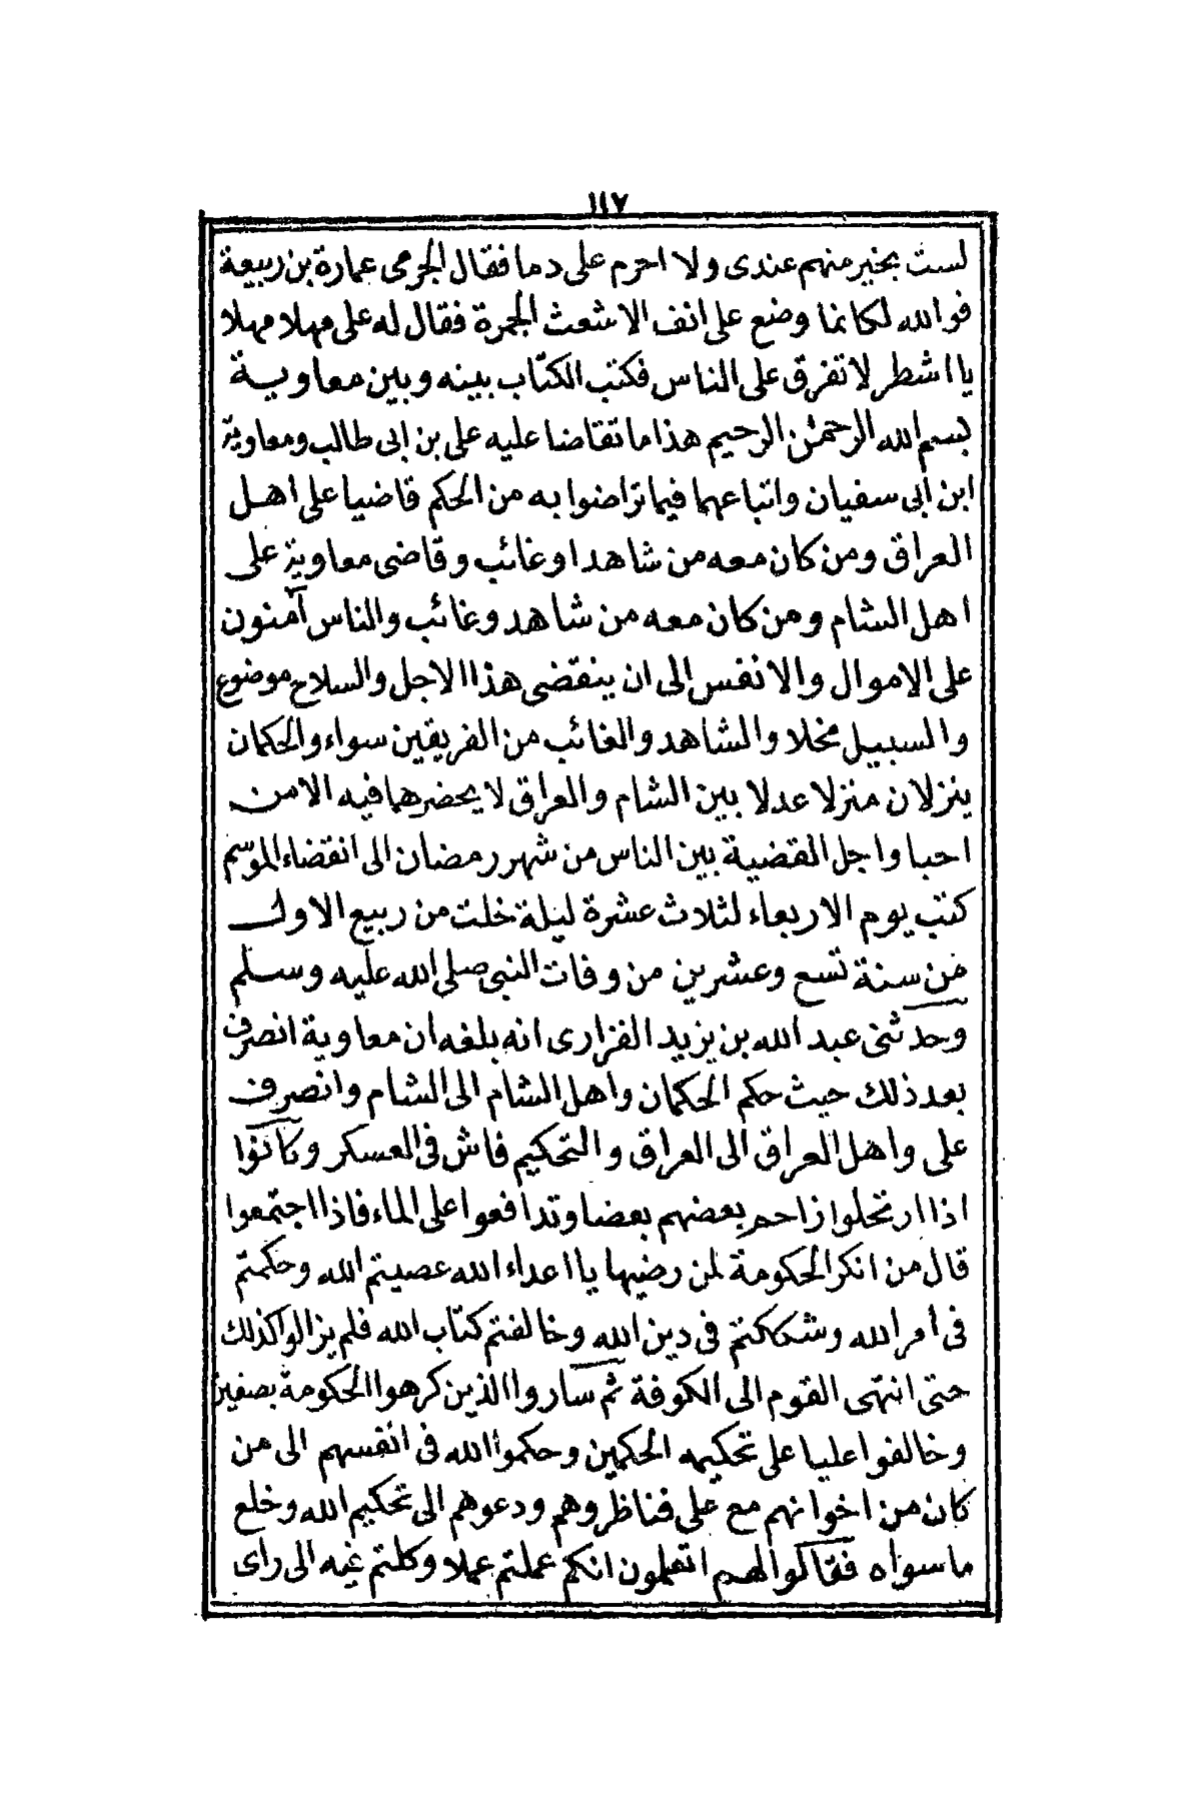 ١١٧
لست بخير منهم عندى ولا احرم على دما فقال الجرمى عمارة بن ربيعة
فوالله لكانما وضع على انف الاشعث الجمرة فقال له على مهلا مهلا
يا اشطر لا تفرق على الناس فكتب الكتاب بينه وبين معاوية
بسم الله الرحمٰن الرحيم هذا ما تقاضا عليه على بن ابى طالب ومعاوية
ابن ابى سفيان واتباعهما فيما تراضوا به من الحكم قاضيا على اهل
العراق ومن كان معه من شاهد اوغائب وقاضى معاوية على
اهل الشام ومن كان معه من شاهد وغائب والناس آمنون
على الاموال والانفس الى ان ينقضى هذا الاجل والسلاح موضوع
والسبيل مخلا والشاهد والغائب من الفريقين سواء والحكمان
ينزلان منزلا عدلا بين الشام والعراق لا يحضرهما فيه الا من
احبا واجل القضية بين الناس من شهر رمضان الى انقضاء الموسم
كتب يوم الاربعاء لثلاث عشرة ليلة خلت من ربيع الاول
من سنة تسع وعشرين من وفات النبى صلى الله عليه وسلم
وحدثنى عبد الله بن يزيد الفزارى انه بلغه ان معاوية انصرف
بعد ذلك حيث حكم الحكمان واهل الشام الى الشام وانصرف
على واهل العراق الى العراق والتحكيم فاش فى العسكر وكانوا
اذا ارتحلوا زاحم بعضهم بعضا وتدافعوا على الماء فاذا اجتمعوا
قال من انكر الحكومة لمن رضيها يا اعداء الله عصيتم الله وحكمتم
فى أمر الله وشككتم فى دين الله وخالفتم كتاب الله فلم يزالوا كذلك
حتى انتهى القوم الى الكوفة ثم ساروا الذين كرهوا الحكومة بصفين
وخالفوا عليا على تحكيمه الحكمين وحكموا الله فى انفسهم الى من
كان من اخوانهم مع على فناظروهم ودعوهم الى تحكيم الله وخلع
ما سواه فقالوا لهم اتعلمون انكم عملتم عملا وكلتم فيه الى راى